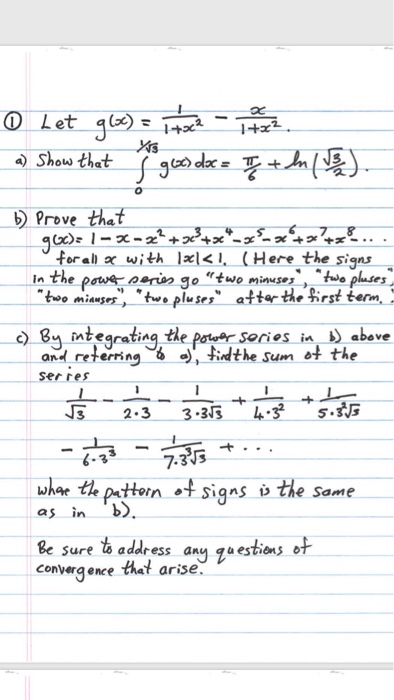 ① Let g(x) = 1/(1+x²) − x/(1+x²).
a) Show that ∫₀^(1/√3) g(x) dx = π/6 + ln(√3/2).
b) Prove that
g(x) = 1 − x − x² + x³ + x⁴ − x⁵ − x⁶ + x⁷ + x⁸ − ...
for all x with |x|<1. (Here the signs
in the power series go "two minuses", "two pluses",
"two minuses", "two pluses" after the first term.
c) By integrating the power series in b) above
and referring to a), find the sum of the
series
1/√3 − 1/(2·3) − 1/(3·3√3) + 1/(4·3²) + 1/(5·3²√3)
− 1/(6·3³) − 1/(7·3³√3) + ...
where the pattern of signs is the same
as in b).
Be sure to address any questions of
convergence that arise.